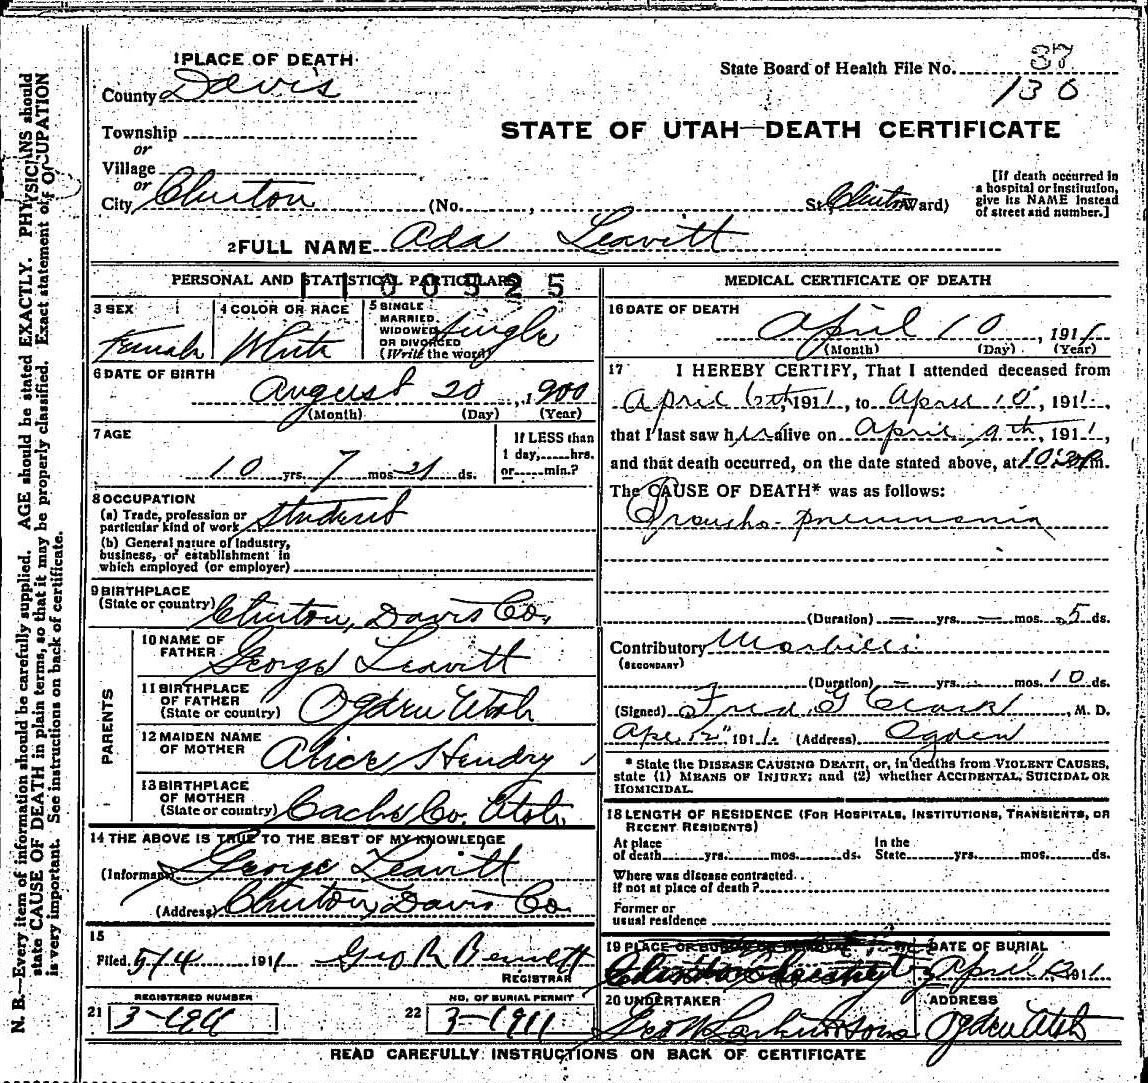 N. B.—Every item of information should be carefully supplied. AGE should be stated EXACTLY. PHYSICIANS should
state CAUSE OF DEATH in plain terms, so that it may be properly classified. Exact statement of OCCUPATION
is very important. See instructions on back of certificate.
1 PLACE OF DEATH
County Davis
Township
or
Village
or
City Clinton (No. , St. Clinton Ward)
State Board of Health File No. 37
130
STATE OF UTAH—DEATH CERTIFICATE
[If death occurred in
a hospital or institution,
give its NAME instead
of street and number.]
2 FULL NAME Ada Leavitt
PERSONAL AND STATISTICAL PARTICULARS
1100525
3 SEX
Female
4 COLOR OR RACE
White
5 SINGLE
MARRIED
WIDOWED
OR DIVORCED
(Write the word)
Single
6 DATE OF BIRTH
August 20, 1900
(Month) (Day) (Year)
7 AGE
10 yrs. 7 mos. 21 ds.
If LESS than
1 day, hrs.
or min.?
8 OCCUPATION
(a) Trade, profession or
particular kind of work Student
(b) General nature of industry,
business, or establishment in
which employed (or employer)
9 BIRTHPLACE
(State or country) Clinton, Davis Co.
PARENTS
10 NAME OF
FATHER George Leavitt
11 BIRTHPLACE
OF FATHER
(State or country) Ogden Utah
12 MAIDEN NAME
OF MOTHER Alice Hendry
13 BIRTHPLACE
OF MOTHER
(State or country) Cache Co. Utah
14 THE ABOVE IS TRUE TO THE BEST OF MY KNOWLEDGE
(Informant) George Leavitt
(Address) Clinton, Davis Co.
15
Filed 5/4 1911 Geo R Bennett
REGISTRAR
21 REGISTERED NUMBER
3-1911
22 NO. OF BURIAL PERMIT
3-1911
MEDICAL CERTIFICATE OF DEATH
16 DATE OF DEATH
April 10, 1911
(Month) (Day) (Year)
17 I HEREBY CERTIFY, That I attended deceased from
April 6th, 1911, to April 10, 1911,
that I last saw her alive on April 9th, 1911,
and that death occurred, on the date stated above, at 10:30 P m.
The CAUSE OF DEATH* was as follows:
Broncho-pneumonia
(Duration) — yrs. — mos. 5 ds.
Contributory Morbilli
(SECONDARY)
(Duration) — yrs. — mos. 10 ds.
(Signed) Fred G Clark, M. D.
Apr. 12" 1911. (Address) Ogden
* State the DISEASE CAUSING DEATH, or, in deaths from VIOLENT CAUSES,
state (1) MEANS OF INJURY; and (2) whether ACCIDENTAL, SUICIDAL OR
HOMICIDAL.
18 LENGTH OF RESIDENCE (FOR HOSPITALS, INSTITUTIONS, TRANSIENTS, OR
RECENT RESIDENTS)
At place
of death yrs. mos. ds.
In the
State yrs. mos. ds.
Where was disease contracted
if not at place of death?
Former or
usual residence
19 PLACE OF BURIAL OR REMOVAL
DATE OF BURIAL
April 12 1911
20 UNDERTAKER
Geo W Larkin & Sons
ADDRESS
Ogden Utah
READ CAREFULLY INSTRUCTIONS ON BACK OF CERTIFICATE